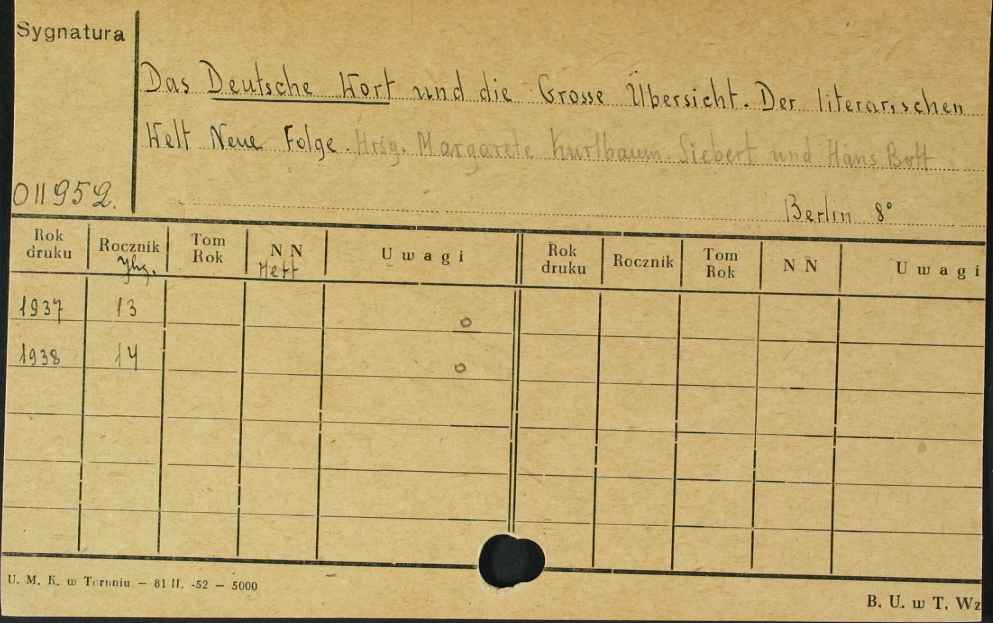 Sygnatura
Das Deutsche Wort und die Grosse Übersicht. Der literarischen
Welt Neue Folge. Hrsg. Margarete Kurlbaum-Siebert und Hans Bott
011952.
Berlin 8°
Rok druku Rocznik Tom Rok N N U w a g i Rok druku Rocznik Tom Rok N N U w a g i
Jhg. Heft
1937 13 o
1938 14 o
U. M. K. w Toruniu — 81 II. -52 — 5000
B. U. w T. Wz